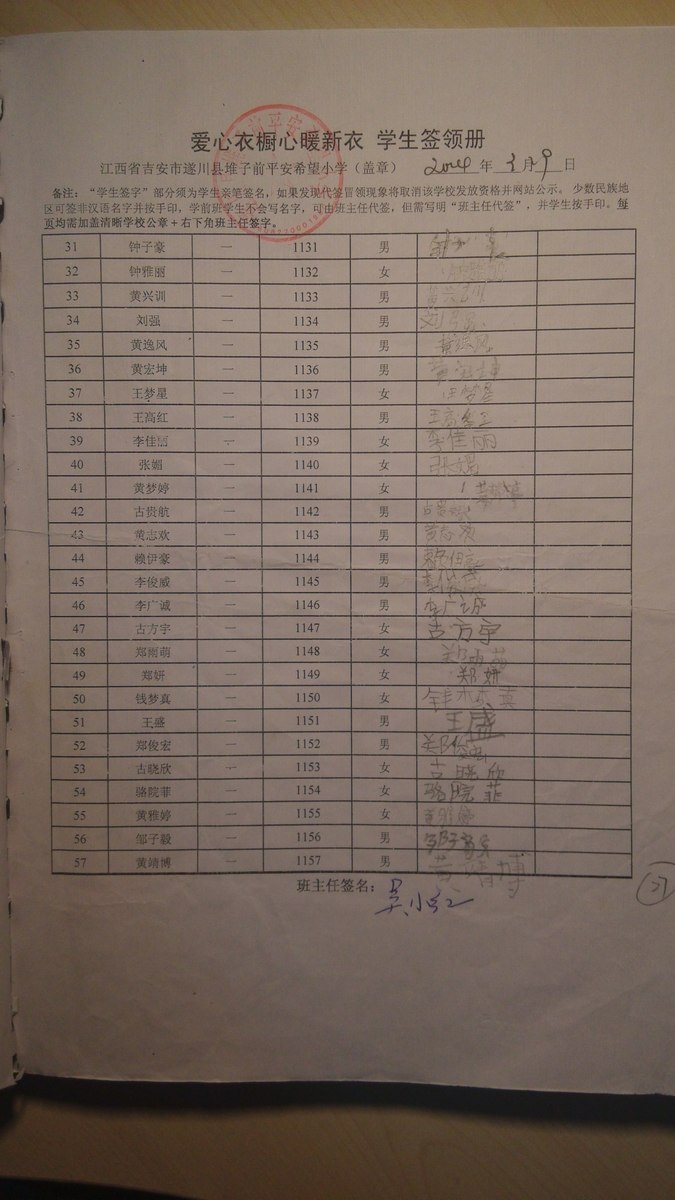 爱心衣橱心暖新衣 学生签领册
江西省吉安市遂川县堆子前平安希望小学（盖章） 2014 年 3 月 9 日
备注：“学生签字”部分须为学生亲笔签名，如果发现代签冒领现象将取消该学校发放资格并网站公示。 少数民族地
区可签非汉语名字并按手印，学前班学生不会写名字，可由班主任代签，但需写明“班主任代签”，并学生按手印。每
页均需加盖清晰学校公章＋右下角班主任签字。
31 钟子豪 一 1131 男
32 钟雅丽 一 1132 女
33 黄兴训 一 1133 男 黄兴训
34 刘强 一 1134 男 刘强
35 黄逸风 一 1135 男 黄逸风
36 黄宏坤 一 1136 男 黄宏坤
37 王梦星 一 1137 女 王梦星
38 王高红 一 1138 男 王高红
39 李佳丽 一 1139 女 李佳丽
40 张媚 一 1140 女 张媚
41 黄梦婷 一 1141 女 黄梦婷
42 古贵航 一 1142 男
43 黄志欢 一 1143 男 黄志欢
44 赖伊豪 一 1144 男
45 李俊威 一 1145 男
46 李广诚 一 1146 男 李广诚
47 古方宇 一 1147 女 古方宇
48 郑雨萌 一 1148 女 郑雨萌
49 郑妍 一 1149 女 郑妍
50 钱梦真 一 1150 女
51 王盛 一 1151 男 王盛
52 郑俊宏 一 1152 男 郑俊宏
53 古晓欣 一 1153 女 古晓欣
54 骆院菲 一 1154 女 骆院菲
55 黄雅婷 一 1155 女 黄雅婷
56 邹子毅 一 1156 男 邹子毅
57 黄靖博 一 1157 男 黄靖博
班主任签名：
27